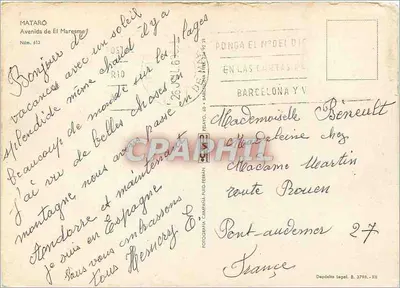 MATARÓ
Avenida de El Maresme
Núm. 413
Bonjour de
vacances avec un soleil
splendide même chaud il y a
beaucoup de monde sur les plages
J'ai vu de belles choses
montagne nous avons passé en
Andorre et maintenant
je suis en Espagne
Vous embrassons
tous Hemery E.
PONGA EL Nº DEL D
EN LAS CARTAS
BARCELONA Y
CPARAMA
Mademoiselle Béneult
Madeleine chez
Madame Martin
route Rouen
Pont-audemer 27
France
Depósito Legal B.